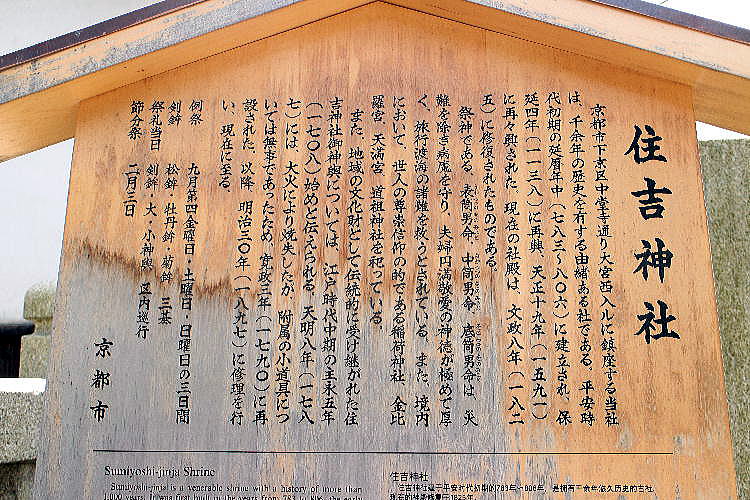 住吉神社
京都市下京区中堂寺通り大宮西入ルに鎮座する当社
は、千余年の歴史を有する由緒ある社である。平安時
代初期の延暦年中(七八三~八〇六)に建立され、保
延四年(一一三八)に再興、天正十九年(一五九一)
に再々興された。現在の社殿は、文政八年(一八二
五)に修復されたものである。
祭神である、表筒男命、中筒男命、底筒男命は、災
難を除き病魔を守り、夫婦円満敬愛の神徳が極めて厚
く、旅行渡海の諸難を救うとされている。また、境内
において、世人の尊崇信仰の的である稲荷神社、金比
羅宮、天満宮、道祖神社を祀っている。
また、地域の文化財として伝統的に受け継がれた住
吉神社御神輿については、江戸時代中期の宝永五年
(一七〇八)始めと伝えられる。天明八年(一七八
七)には、大火により焼失したが、附属の小道具につ
いては無事であったため、寛政三年(一七九〇)に再
設された。以降、明治三〇年(一八九七)に修理を行
い、現在に至る。
例祭 九月第四金曜日・土曜日・日曜日の三日間
剣鉾 松鉾 牡丹鉾 菊鉾 三基
祭礼当日 剣鉾・大・小神輿 区内巡行
節分祭 二月三日
京都市
Sumiyoshi-jinja Shrine
Sumiyoshi-jinja is a venerable shrine with a history of more than
1,000 years. It was first built in the years from 783 to 806, the early
住吉神社
住吉神社建于平安时代初期的783年~806年，是拥有千余年悠久历史的古社。
现在的神殿修复于1825年。